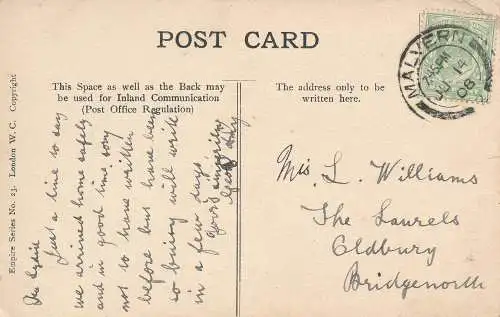 POST CARD
This Space as well as the Back may
be used for Inland Communication
(Post Office Regulation)
The address only to be
written here.
MALVERN
JU 14
08
Empire Series No. 23. London W. C. Copyright
Just a line to say
we arrived home safely
and in good time sorry
not to have written
before but have been
so busy will write
in a few days
yours sincerely
Miss L. Williams
The Laurels
Oldbury
Bridgenorth